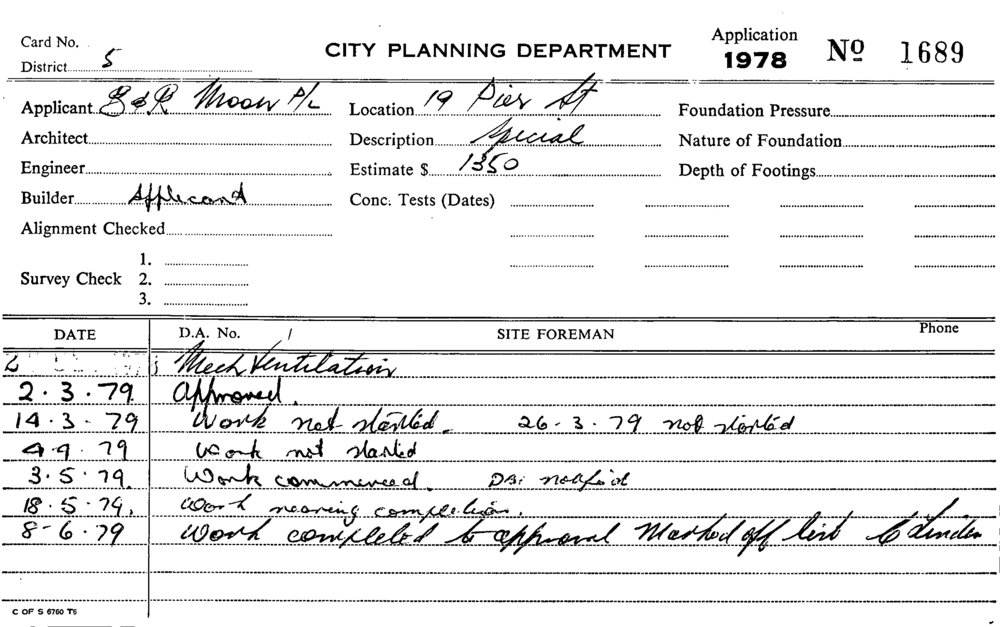 Card No.
District 5
CITY PLANNING DEPARTMENT
Application
1978 No 1689
Applicant G & R Moon P/L
Location 19 Pier St
Foundation Pressure
Architect
Description Special
Nature of Foundation
Engineer
Estimate $ 1350
Depth of Footings
Builder Applicant
Conc. Tests (Dates)
Alignment Checked
Survey Check 1.
2.
3.
DATE D.A. No. / SITE FOREMAN Phone
Mech Ventilation
2.3.79 Approved.
14.3.79 Work not started. 26-3.79 not started
4.4.79 Work not started
3.5.79. Work commenced.
18.5.79. Work nearing completion.
8-6.79 Work completed to approval Marked off list
C OF S 6760 T5